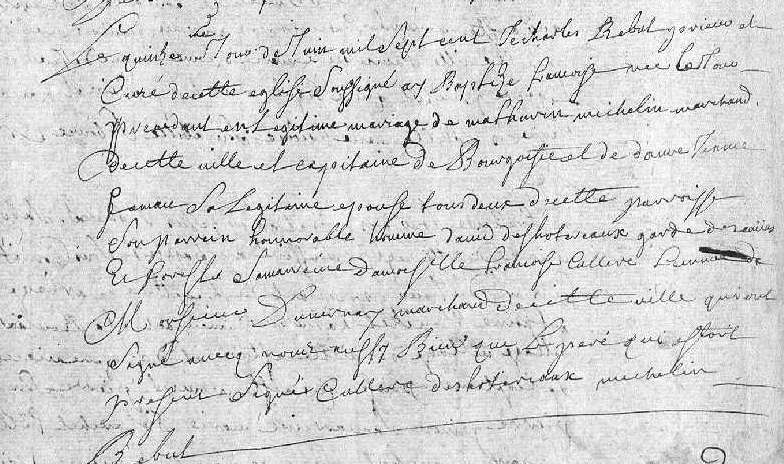 Le quinzieme Jour de Juin mil sept cent Je charles Rebut prieur et
Curé de cette eglise soussigné ay Baptizé francoise nee le Jour
precedant en legitime mariage de mathurin michelin marchand
de cette ville et capitaine de Bourgoisie et de dame
sa legitime epouse tous deux de cette parroisse
son parrein honnorable homme david deshotereaux garde des eaües
et forests sa marreine damoiselle francoise Cullere femme de
Monsieur marchand de cette ville qui ont
signé avecq nous aussy Bien que le peré qui estoit
present signé Cullere deshotereaux michelin
Rebut